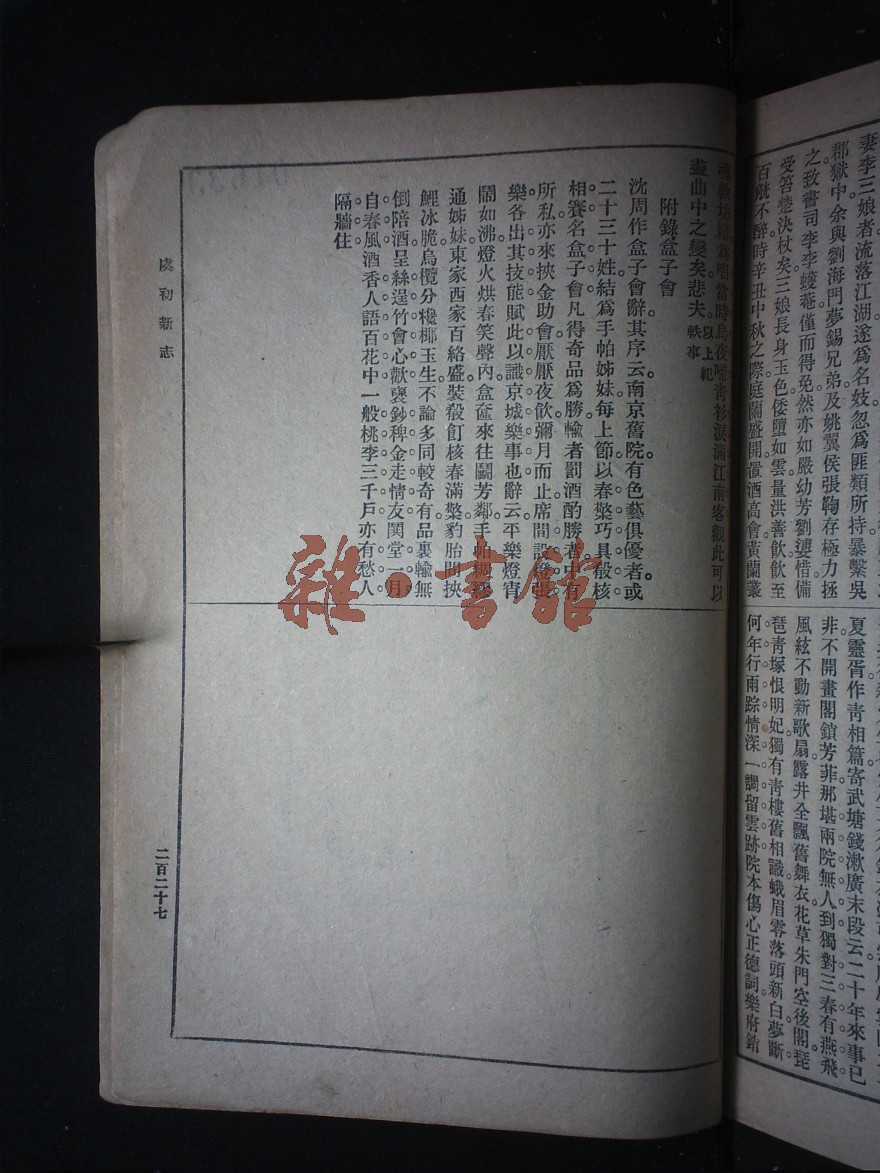 妻李三娘者流落江湖遂爲名妓忽爲匪類所持暴繫吳
郡獄中余與劉海門夢錫兄弟及姚翼侯張鞠存極力拯
之致書司李李蠖菴僅而得免然亦如嚴幼芳劉婆惜備
受笞楚決杖矣三娘長身玉色倭墮如雲量洪善飮飮至
百觥不醉時辛丑中秋之際庭蘭盛開置酒高會黃蘭叢
夏靈胥作靑相篇寄武塘錢漱廣末段云二十年來事已
非不開畫閣鎖芳菲那堪兩院無人到獨對三春有燕飛
風絃不動新歌扇露井全飄舊舞衣花草朱門空後閣琵
琶靑塚恨明妃獨有靑樓舊相識蛾眉零落頭新白夢斷
何年行雨踪情深一調留雲跡院本傷心正德詞樂府
爲唱當時烏夜啼靑衫淚滿江南客觀此可以
盡曲中之變矣悲夫。以上紀軼事
附錄盒子會
沈周作盒子會辭其序云南京舊院有色藝俱優者或
二十三十姓結爲手帕姊妹每上節以春檠巧具殽核
相賽名盒子會凡得奇品爲勝輸者罰酒酌勝者中有
所私亦來挾金助會厭厭夜飮彌月而止席間設燈張
樂各出其技能賦此以識京城樂事也辭云平樂燈宵
鬧如沸燈火烘春笑聲內盒奩來往鬭芳鄰手帕綢繆
通姊妹東家西家百絡盛裝殽飣核春滿檠豹胎間挾
鯉冰脆烏欖分欃椰玉生不論多同較奇有品裏輸無
倒陪酒呈絲逞竹會心歡裒鈔稗金走情友閧堂一月
自春風酒香人語百花中一般桃李三千戶亦有愁人
隔牆住
虞初新志
二百二十七
雜·書館